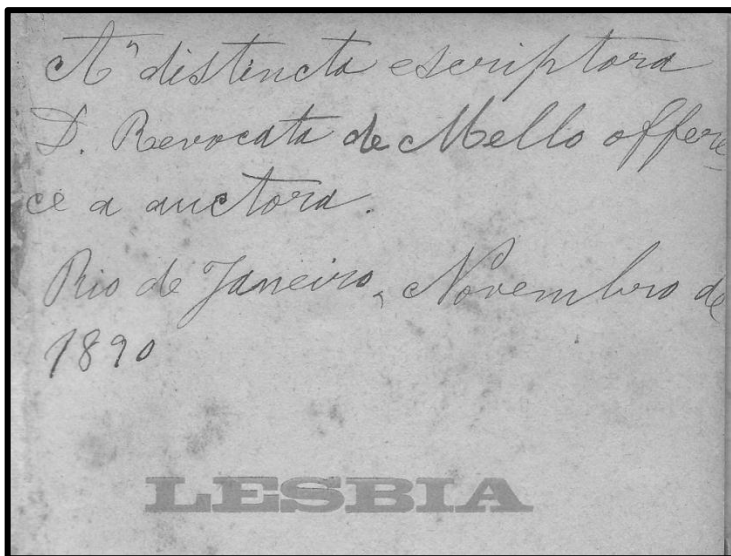 Á distincta escriptora
D. Revocata de Mello offere
ce a auctora.
Rio de Janeiro, Novembro de
1890
LESBIA